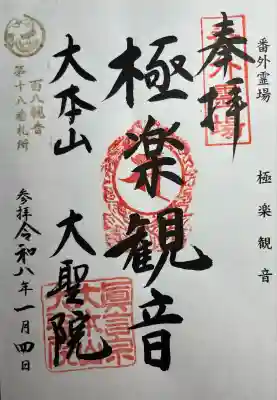 番外霊場　極楽観音
奉拝
極楽観音
大本山　大聖院
百八観音
第十八番札所
参拝令和八年一月四日
真言宗
大本山
大聖院